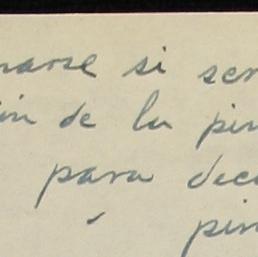 narse si ser
ón de la pin
para deco
pin